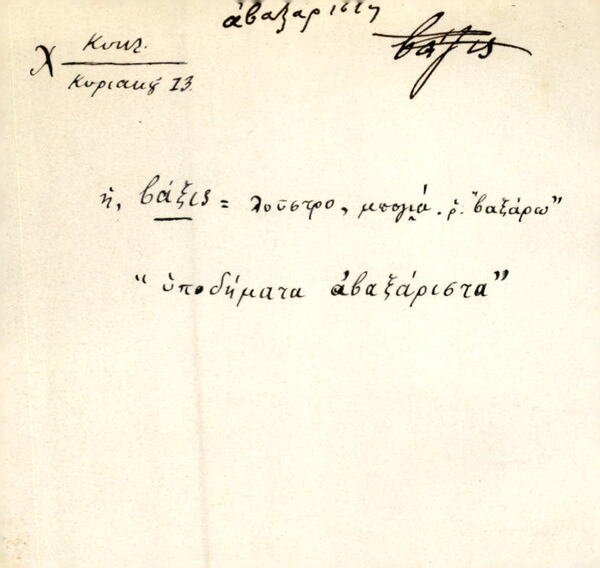 ἀβαξάριστη
βάξις
Χ Κυκλ.
Κυριακῆς 13
ἡ, βάξις = λοῦστρο, μπογιά. ῥ. "βαξάρω"
"ὑποδήματα ἀβαξάριστα"